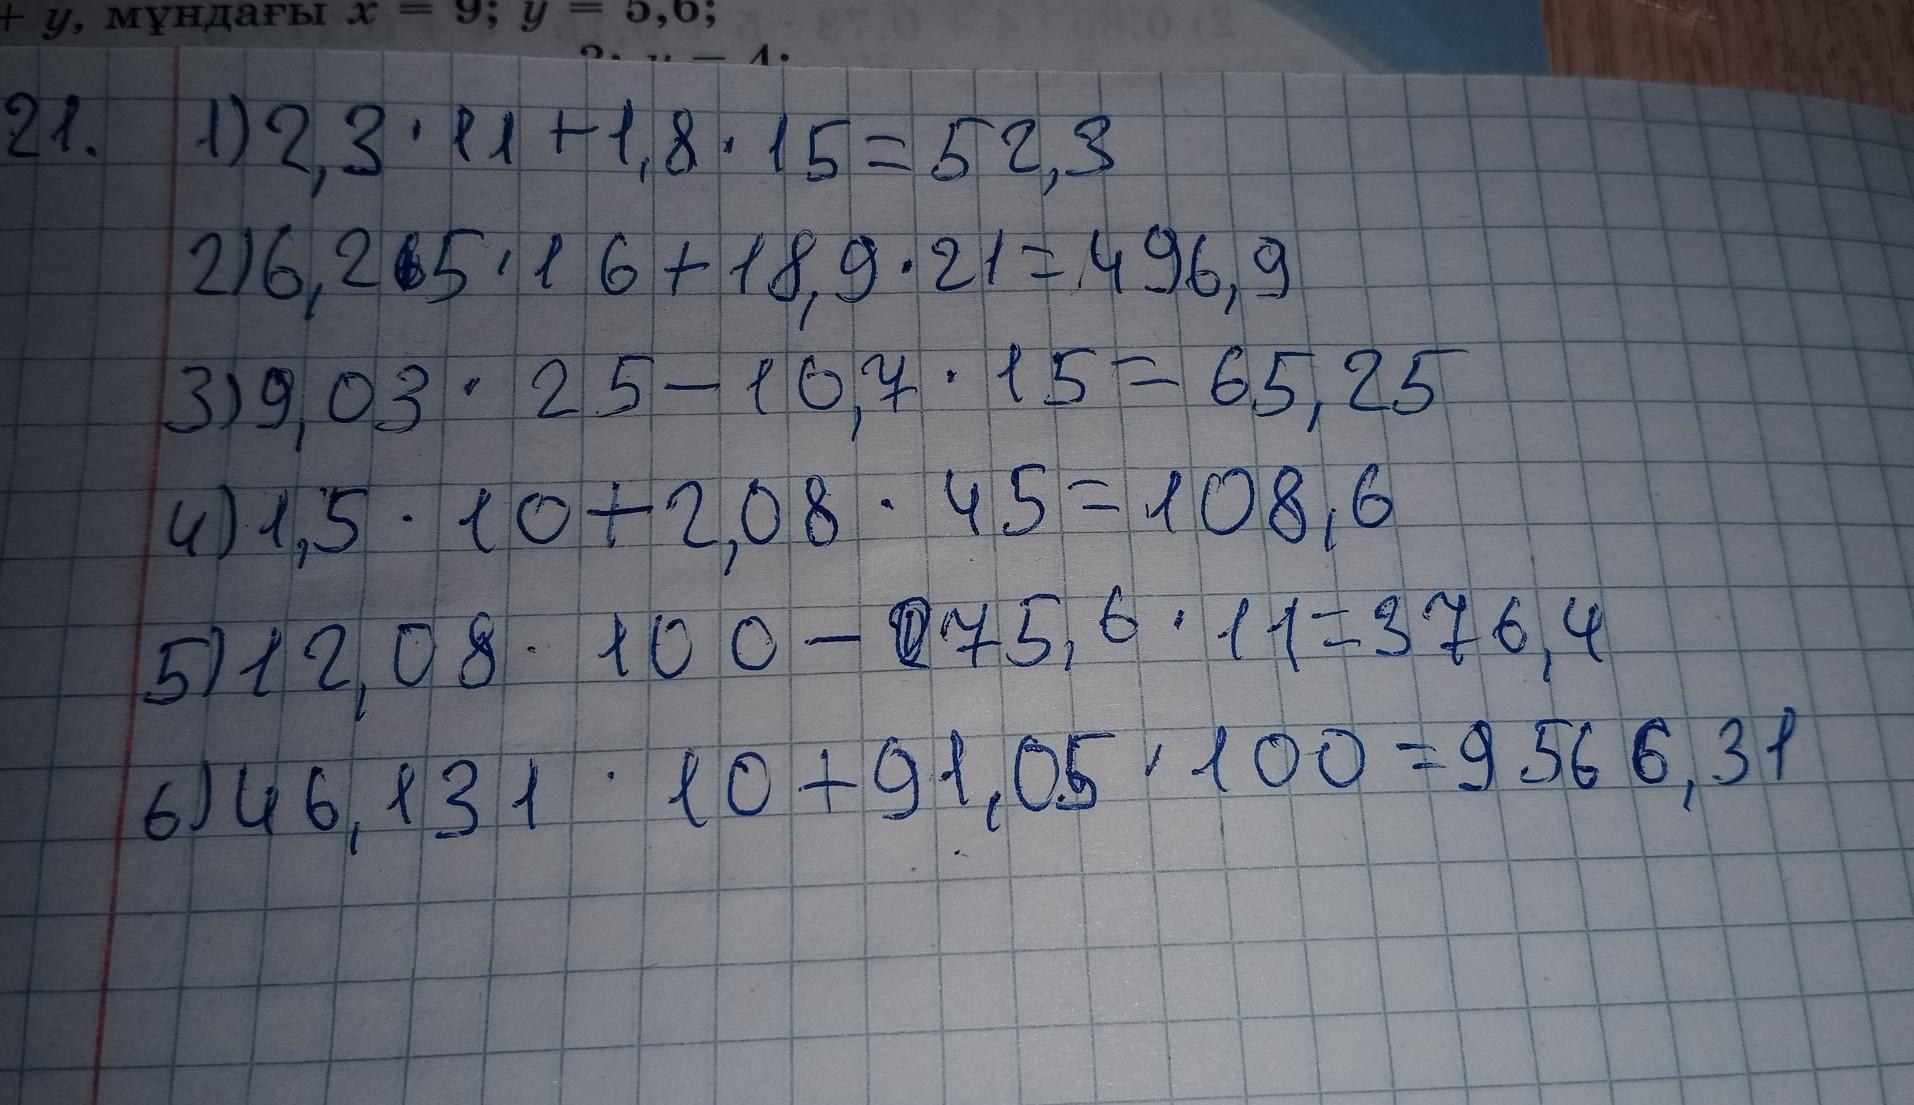 + y, мұндағы x = 9; y = 5,6;
y = 4;
21. 1) 2,3 · 11 + 1,8 · 15 = 52,3
2) 6,265 · 16 + 18,9 · 21 = 496,9
3) 9,03 · 25 - 10,7 · 15 = 65,25
4) 1,5 · 10 + 2,08 · 45 = 108,6
5) 12,08 · 100 - 75,6 · 11 = 376,4
6) 46,131 · 10 + 91,05 · 100 = 9566,31